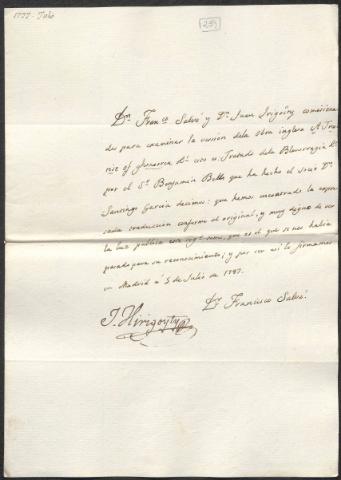 1797-Julio
Dn. Franco. Salvá y Dn. Juan Irigoity comisiona-
dos para examinar la version dela obra inglesa A Trea-
tise of Gonorrea &a. esto es: Tratado dela Blenorragia &a.
por el Sr. Benjamin Bell que ha hecho el socio Dn.
Santiago Garcia decimos: que hemos encontrado la expre-
sada traduccion conforme el original, y muy digna de ver
la luz publica con, que es el que se nos habia
pasado para su reconocimiento; y por ser asi lo firmamos
en Madrid á 5 de Julio de 1797.
Dn. Francisco Salvá.
J. Hirigoyty